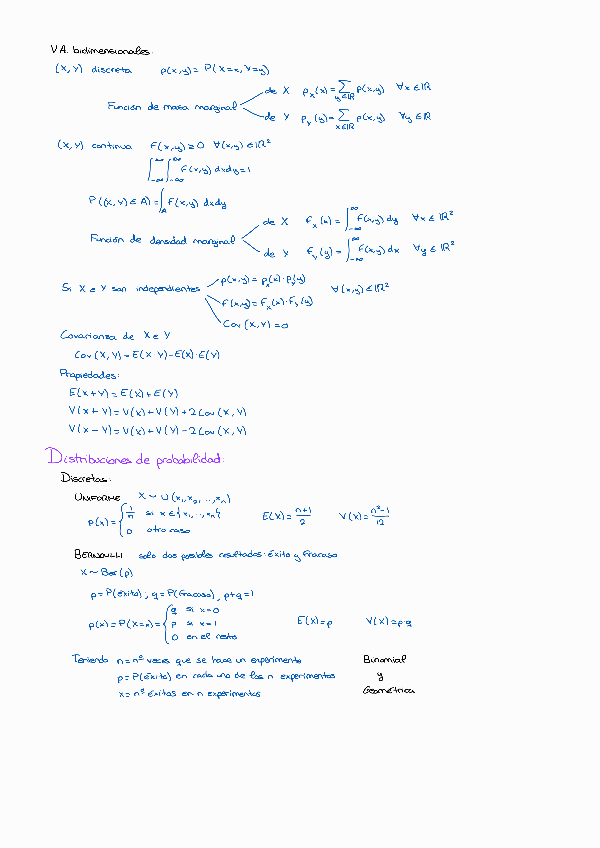 V.A. bidimensionales:
(X,Y) discreta p(x,y) = P(X=x, Y=y)
Función de masa marginal
de X p_X(x) = ∑_{y∈ℝ} p(x,y) ∀x∈ℝ
de Y p_Y(y) = ∑_{x∈ℝ} p(x,y) ∀y∈ℝ
(X,Y) continua f(x,y) ≥ 0 ∀(x,y)∈ℝ²
∫_{-∞}^{∞} ∫_{-∞}^{∞} f(x,y) dxdy = 1
P((X,Y)∈A) = ∫_A f(x,y) dxdy
Función de densidad marginal
de X f_X(x) = ∫_{-∞}^{∞} f(x,y) dy ∀x∈ℝ²
de Y f_Y(y) = ∫_{-∞}^{∞} f(x,y) dx ∀y∈ℝ²
Si X e Y son independientes
p(x,y) = p_X(x)·p_Y(y)
f(x,y) = f_X(x)·f_Y(y)
∀(x,y)∈ℝ²
Cov(X,Y) = 0
Covarianza de X e Y
Cov(X,Y) = E(X·Y) - E(X)·E(Y)
Propiedades:
E(X+Y) = E(X) + E(Y)
V(X+Y) = V(X) + V(Y) + 2Cov(X,Y)
V(X-Y) = V(X) + V(Y) - 2Cov(X,Y)
Distribuciones de probabilidad:
Discretas:
UNIFORME X ~ U(x₁, x₂, ..., xₙ)
p(x) = { 1/n si x∈{x₁, ..., xₙ} E(X) = (n+1)/2 V(X) = (n²-1)/12
0 otro caso
BERNOULLI solo dos posibles resultados: éxito y fracaso
X ~ Ber(p)
p = P(éxito), q = P(fracaso), p+q=1
p(x) = P(X=x) = { q si x=0
p si x=1 E(X) = p V(X) = p·q
0 en el resto
Teniendo n = nº veces que se hace un experimento Binomial
p = P(éxito) en cada uno de los n experimentos y
x = nº éxitos en n experimentos Geométrica